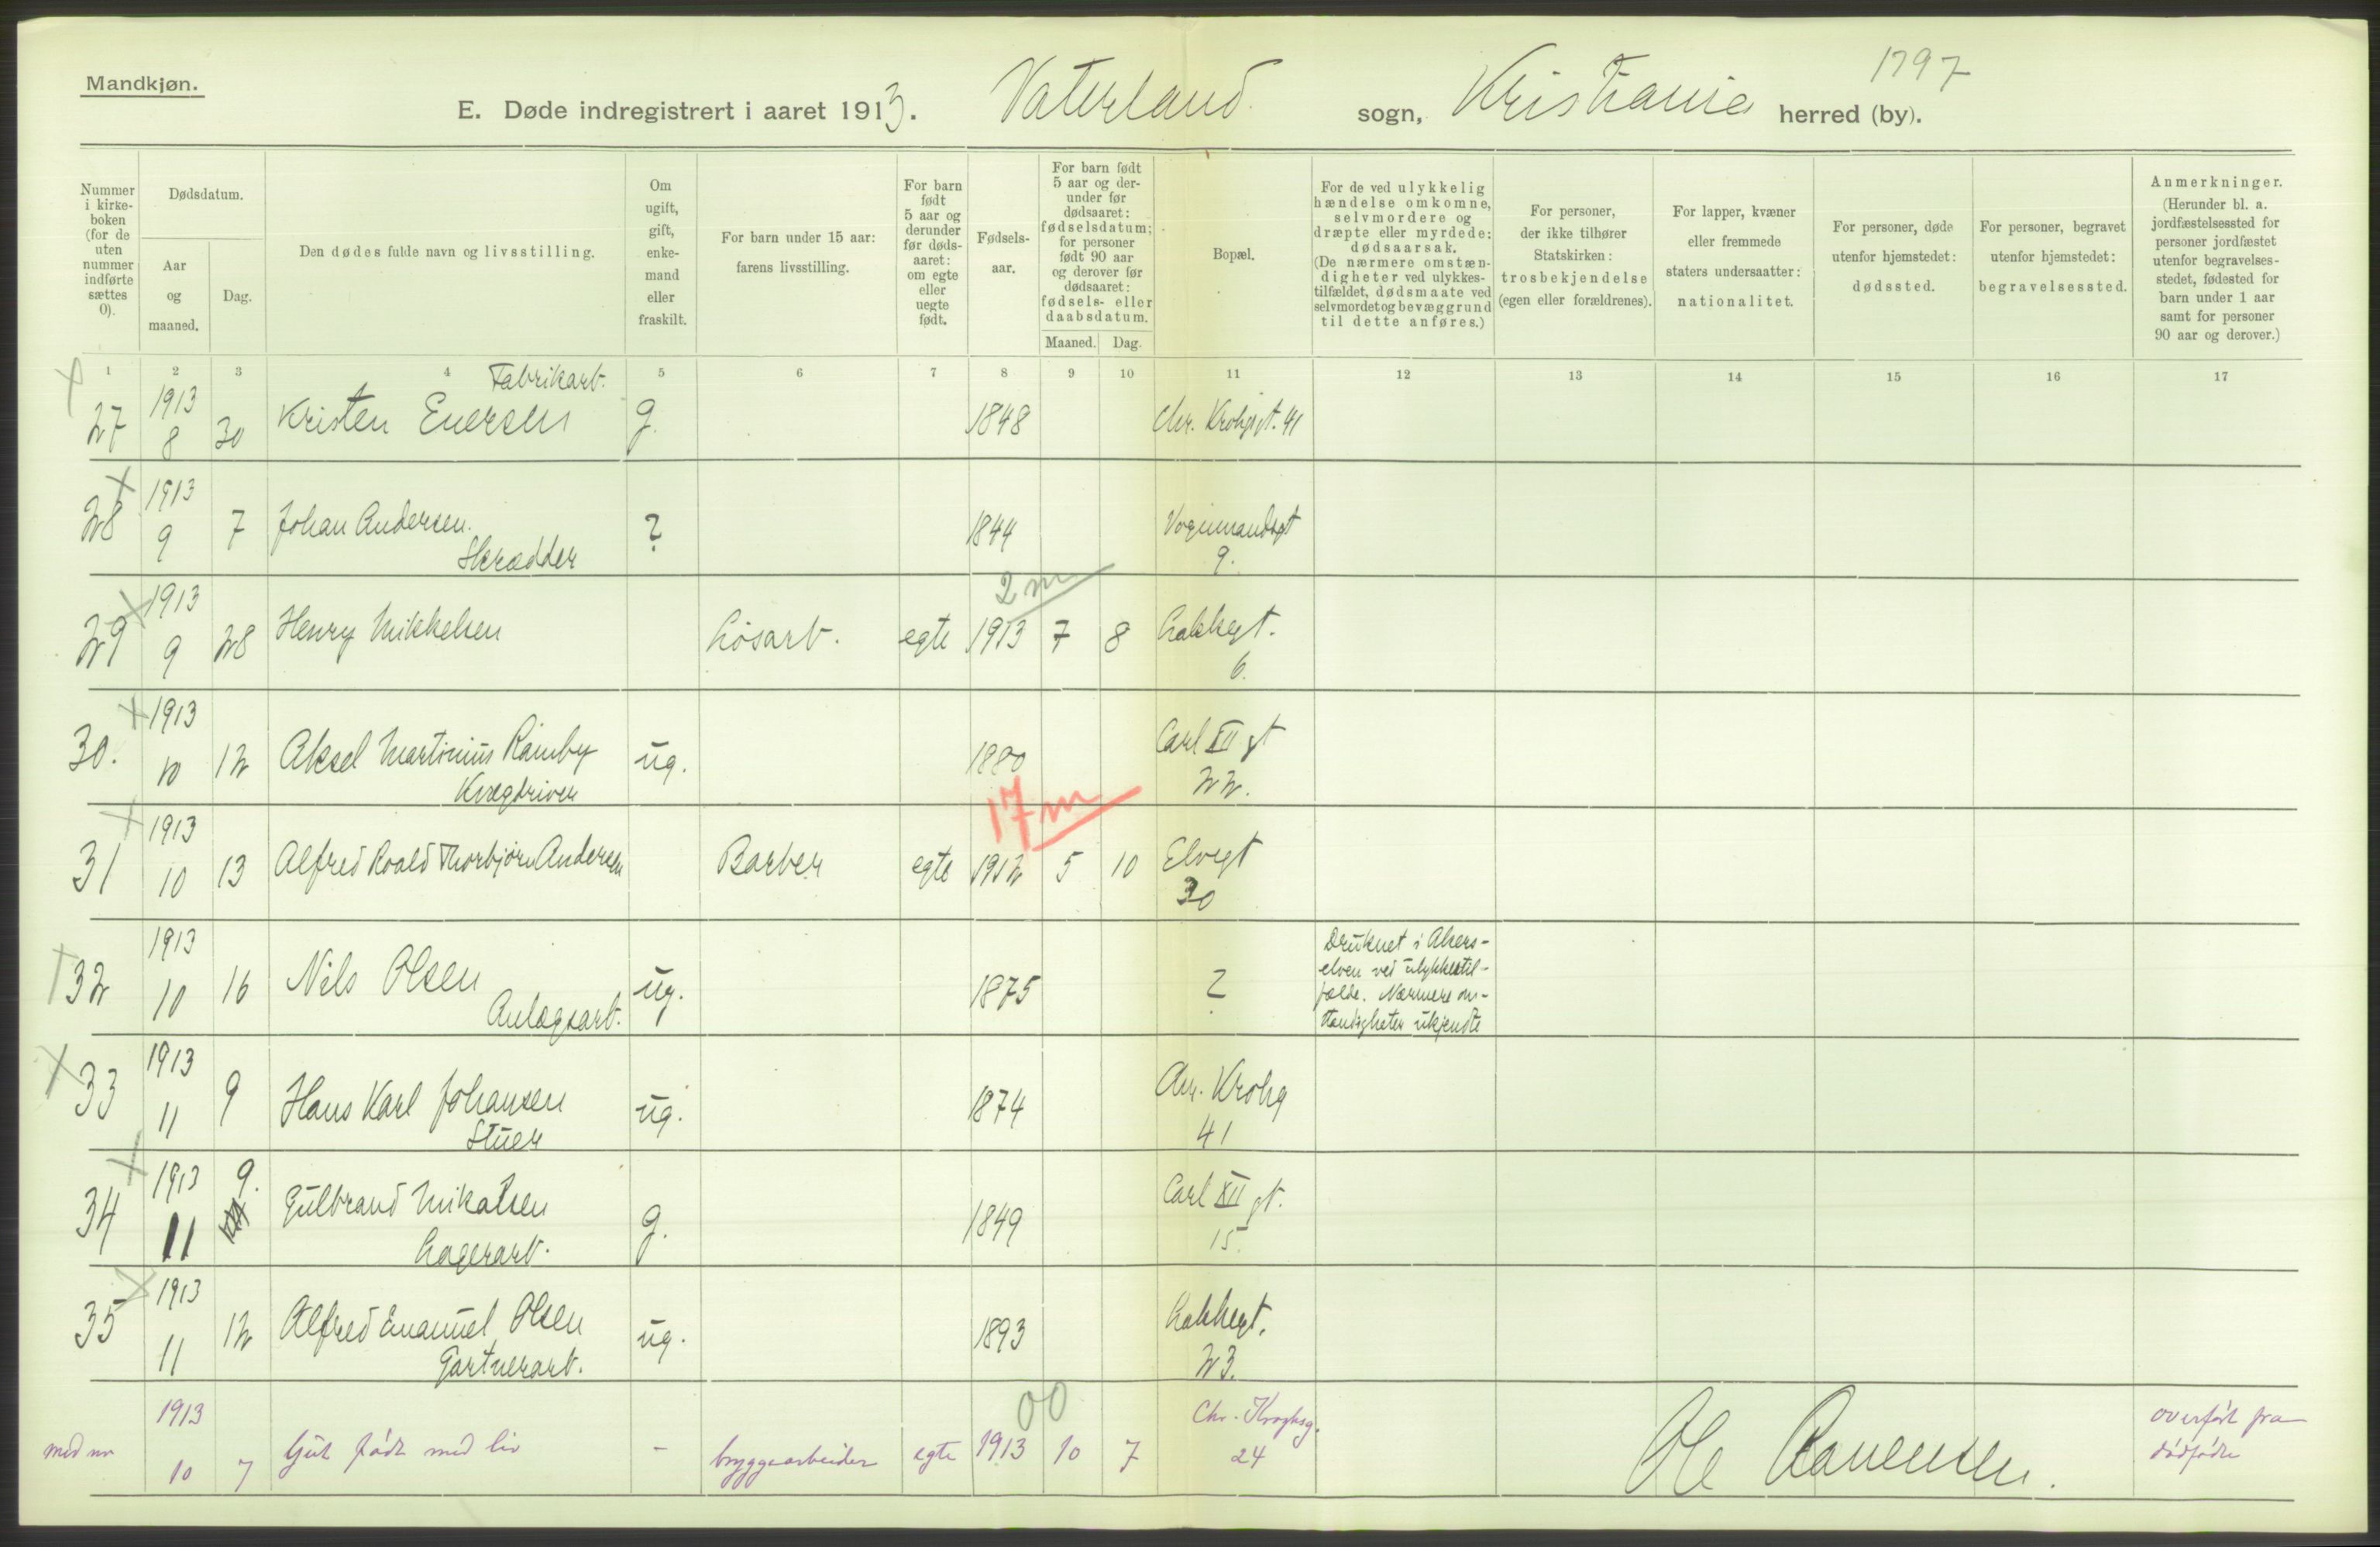 1797
Mandkjøn.
E. Døde indregistrert i aaret 1913. Vaterland sogn, Kristiania herred (by).
Nummer i kirke-boken (for de uten nummer indførte sættes 0).
Dødsdatum.
Aar og maaned.
Dag.
Den dødes fulde navn og livsstilling.
Om ugift, gift, enke-mand eller fraskilt.
For barn under 15 aar: farens livsstilling.
For barn født 5 aar og derunder før døds-aaret: om egte eller uegte født.
Fødsels-aar.
For barn født 5 aar og der-under før dødsaaret: fødselsdatum; for personer født 90 aar og derover før dødsaaret: fødsels- eller daabsdatum.
Maaned. Dag.
Bopæl.
For de ved ulykkelig hændelse omkomne, selvmordere og dræpte eller myrdede: dødsaarsak. (De nærmere omstæn-digheter ved ulykkes-tilfældet, dødsmaate ved selvmordet og bevæggrund til dette anføres.)
For personer, der ikke tilhører Statskirken: trosbekjendelse (egen eller forældrenes).
For lapper, kvæner eller fremmede staters undersaatter: nationalitet.
For personer, døde utenfor hjemstedet: dødssted.
For personer, begravet utenfor hjemstedet: begravelsessted.
Anmerkninger. (Herunder bl. a. jordfæstelsessted for personer jordfæstet utenfor begravelses-stedet, fødested for barn under 1 aar samt for personer 90 aar og derover.)
1 2 3 4 5 6 7 8 9 10 11 12 13 14 15 16 17
x 1913 Fabrikarb.
27 8 30 Kristen Eversen g. 1848 Chr. Krohgsgt. 41
x 1913
28 9 7 Johan Andersen. ? 1844 Vognmandsgt
Skrædder 9.
x 1913 2 m
29 9 28 Henry Mikkelsen Løsarb. egte 1913 7 8 Lakkegt.
6.
x 1913
30. 10 12 Aksel Martinius Ramby ug. 1880 Carl XII gt
Kvægdriver 22.
x 1913 17 m
31 10 13 Alfred Roald Thorbjørn Andersen Barber egte 1912 5 10 Elvegt
30
1913 Druknet i Akers-
32 10 16 Nils Olsen ug. 1875 ? elven ved ulykkestil-
Anlægsarb. fælde. Nærmere om-
stændigheter ukjendte
x 1913
33 11 9 Hans Karl Johansen ug. 1874 Chr. Krohg
Stuer 41
x 1913 9.
34 11 Gulbrand Mikalsen g. 1849 Carl XII gt.
Lagerarb. 15.
x 1913
35 11 12 Alfred Emanuel Olsen ug. 1893 Lakkegt.
Gartnerarb. 23.
1913 00 Chr. Kroghsg. overført fra
10 7 Gut født med liv - bryggearbeider egte 1913 10 7 24 dødfødte
Ole